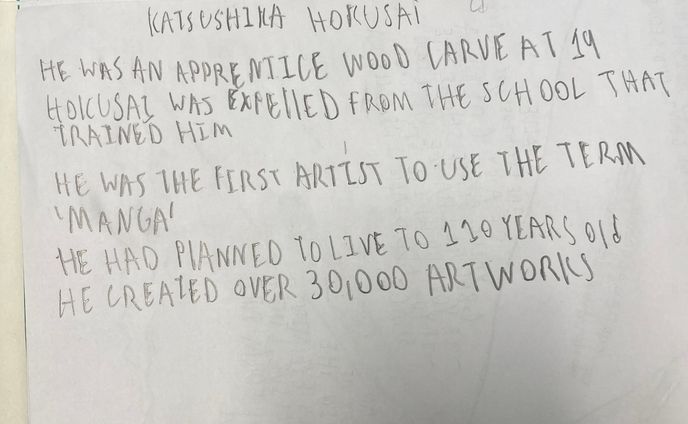 KATSUSHIKA HOKUSAI
HE WAS AN APPRENTICE WOOD CARVE AT 14
HOKUSAI WAS EXPELLED FROM THE SCHOOL THAT
TRAINED HIM
HE WAS THE FIRST ARTIST TO USE THE TERM
'MANGA'
HE HAD PLANNED TO LIVE TO 110 YEARS OLD
HE CREATED OVER 30,000 ARTWORKS